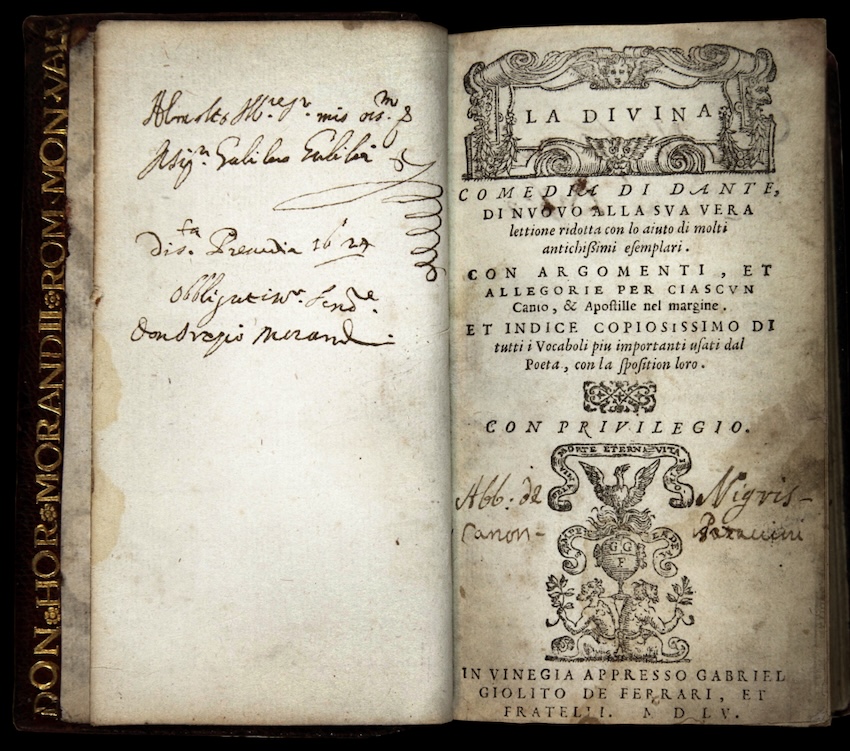 DON HOR MORANDII ROM MON VALL
Al molto Ill.re Sr. mio oss.mo
Galileo Galilei
Di s.ta 1624
Obbligatiss.
Don Orazio Morandi
LA DIVINA
COMEDIA DI DANTE,
DI NVOVO ALLA SVA VERA
lettione ridotta con lo aiuto di molti
antichißimi esemplari.
CON ARGOMENTI, ET
ALLEGORIE PER CIASCVN
Canto, & Apostille nel margine.
ET INDICE COPIOSISSIMO DI
tutti i Vocaboli piu importanti usati dal
Poeta, con la sposition loro.
CON PRIVILEGIO.
MORTE ETERNA VITA
Abb. de Nigris
Canon-
SEMPER EADEM
G G
F
IN VINEGIA APPRESSO GABRIEL
GIOLITO DE FERRARI, ET
FRATELLI. M D LV.